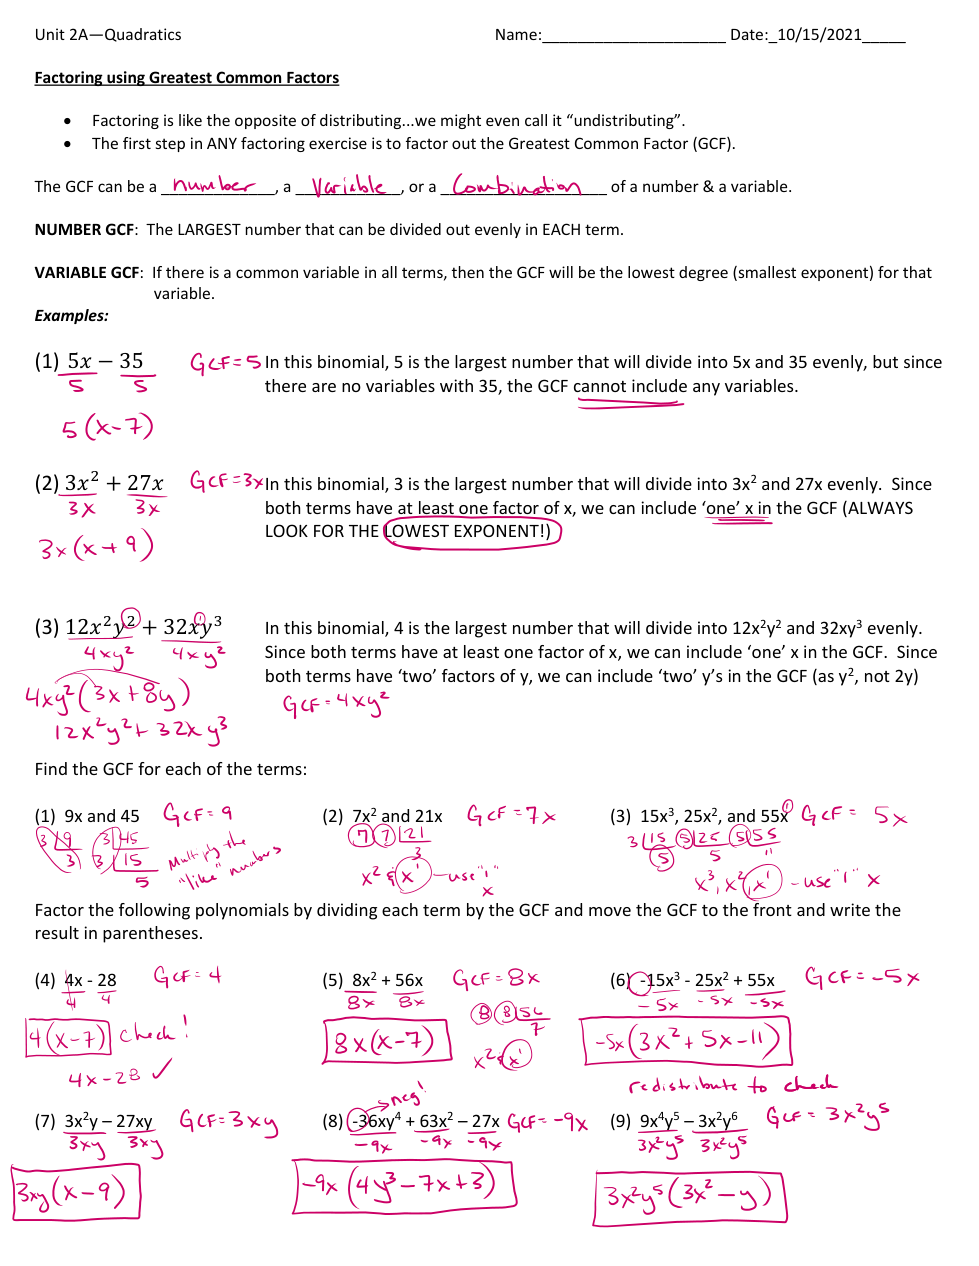 Unit 2A—Quadratics Name:______________________ Date:_10/15/2021_____
Factoring using Greatest Common Factors
• Factoring is like the opposite of distributing...we might even call it “undistributing”.
• The first step in ANY factoring exercise is to factor out the Greatest Common Factor (GCF).
The GCF can be a number, a Variable, or a Combination of a number & a variable.
NUMBER GCF: The LARGEST number that can be divided out evenly in EACH term.
VARIABLE GCF: If there is a common variable in all terms, then the GCF will be the lowest degree (smallest exponent) for that
variable.
Examples:
(1) 5x − 35 GCF=5 In this binomial, 5 is the largest number that will divide into 5x and 35 evenly, but since
5 5 there are no variables with 35, the GCF cannot include any variables.
5(x-7)
(2) 3x² + 27x GCF=3x In this binomial, 3 is the largest number that will divide into 3x² and 27x evenly. Since
3x 3x both terms have at least one factor of x, we can include ‘one’ x in the GCF (ALWAYS
LOOK FOR THE LOWEST EXPONENT!)
3x(x+9)
(3) 12x²y² + 32x¹y³ In this binomial, 4 is the largest number that will divide into 12x²y² and 32xy³ evenly.
4xy² 4xy² Since both terms have at least one factor of x, we can include ‘one’ x in the GCF. Since
both terms have ‘two’ factors of y, we can include ‘two’ y’s in the GCF (as y², not 2y)
4xy²(3x+8y) GCF=4xy²
12x²y²+32xy³
Find the GCF for each of the terms:
(1) 9x and 45 GCF=9 (2) 7x² and 21x GCF=7x (3) 15x³, 25x², and 55x¹ GCF= 5x
3 9 3 45 Multiply the 7 7 21 3 15 5 25 5 55
3 3 15 "like" numbers 3 5 5 11
5 x² & x¹ -use "1" x³, x², x¹ -use "1" x
x
Factor the following polynomials by dividing each term by the GCF and move the GCF to the front and write the
result in parentheses.
(4) 4x - 28 GCF=4 (5) 8x² + 56x GCF=8x (6) -15x³ - 25x² + 55x GCF=-5x
4 4 8x 8x -5x -5x -5x
8 8 56
7
4(x-7) check! 8x(x-7) x² & x¹ -5x(3x²+5x-11)
4x-28 ✓ redistribute to check
neg!
(7) 3x²y – 27xy GCF=3xy (8) -36xy⁴ + 63x² – 27x GCF=-9x (9) 9x⁴y⁵ – 3x²y⁶ GCF= 3x²y⁵
3xy 3xy -9x -9x -9x 3x²y⁵ 3x²y⁵
3xy(x-9) -9x(4y³-7x+3) 3x²y⁵(3x²-y)